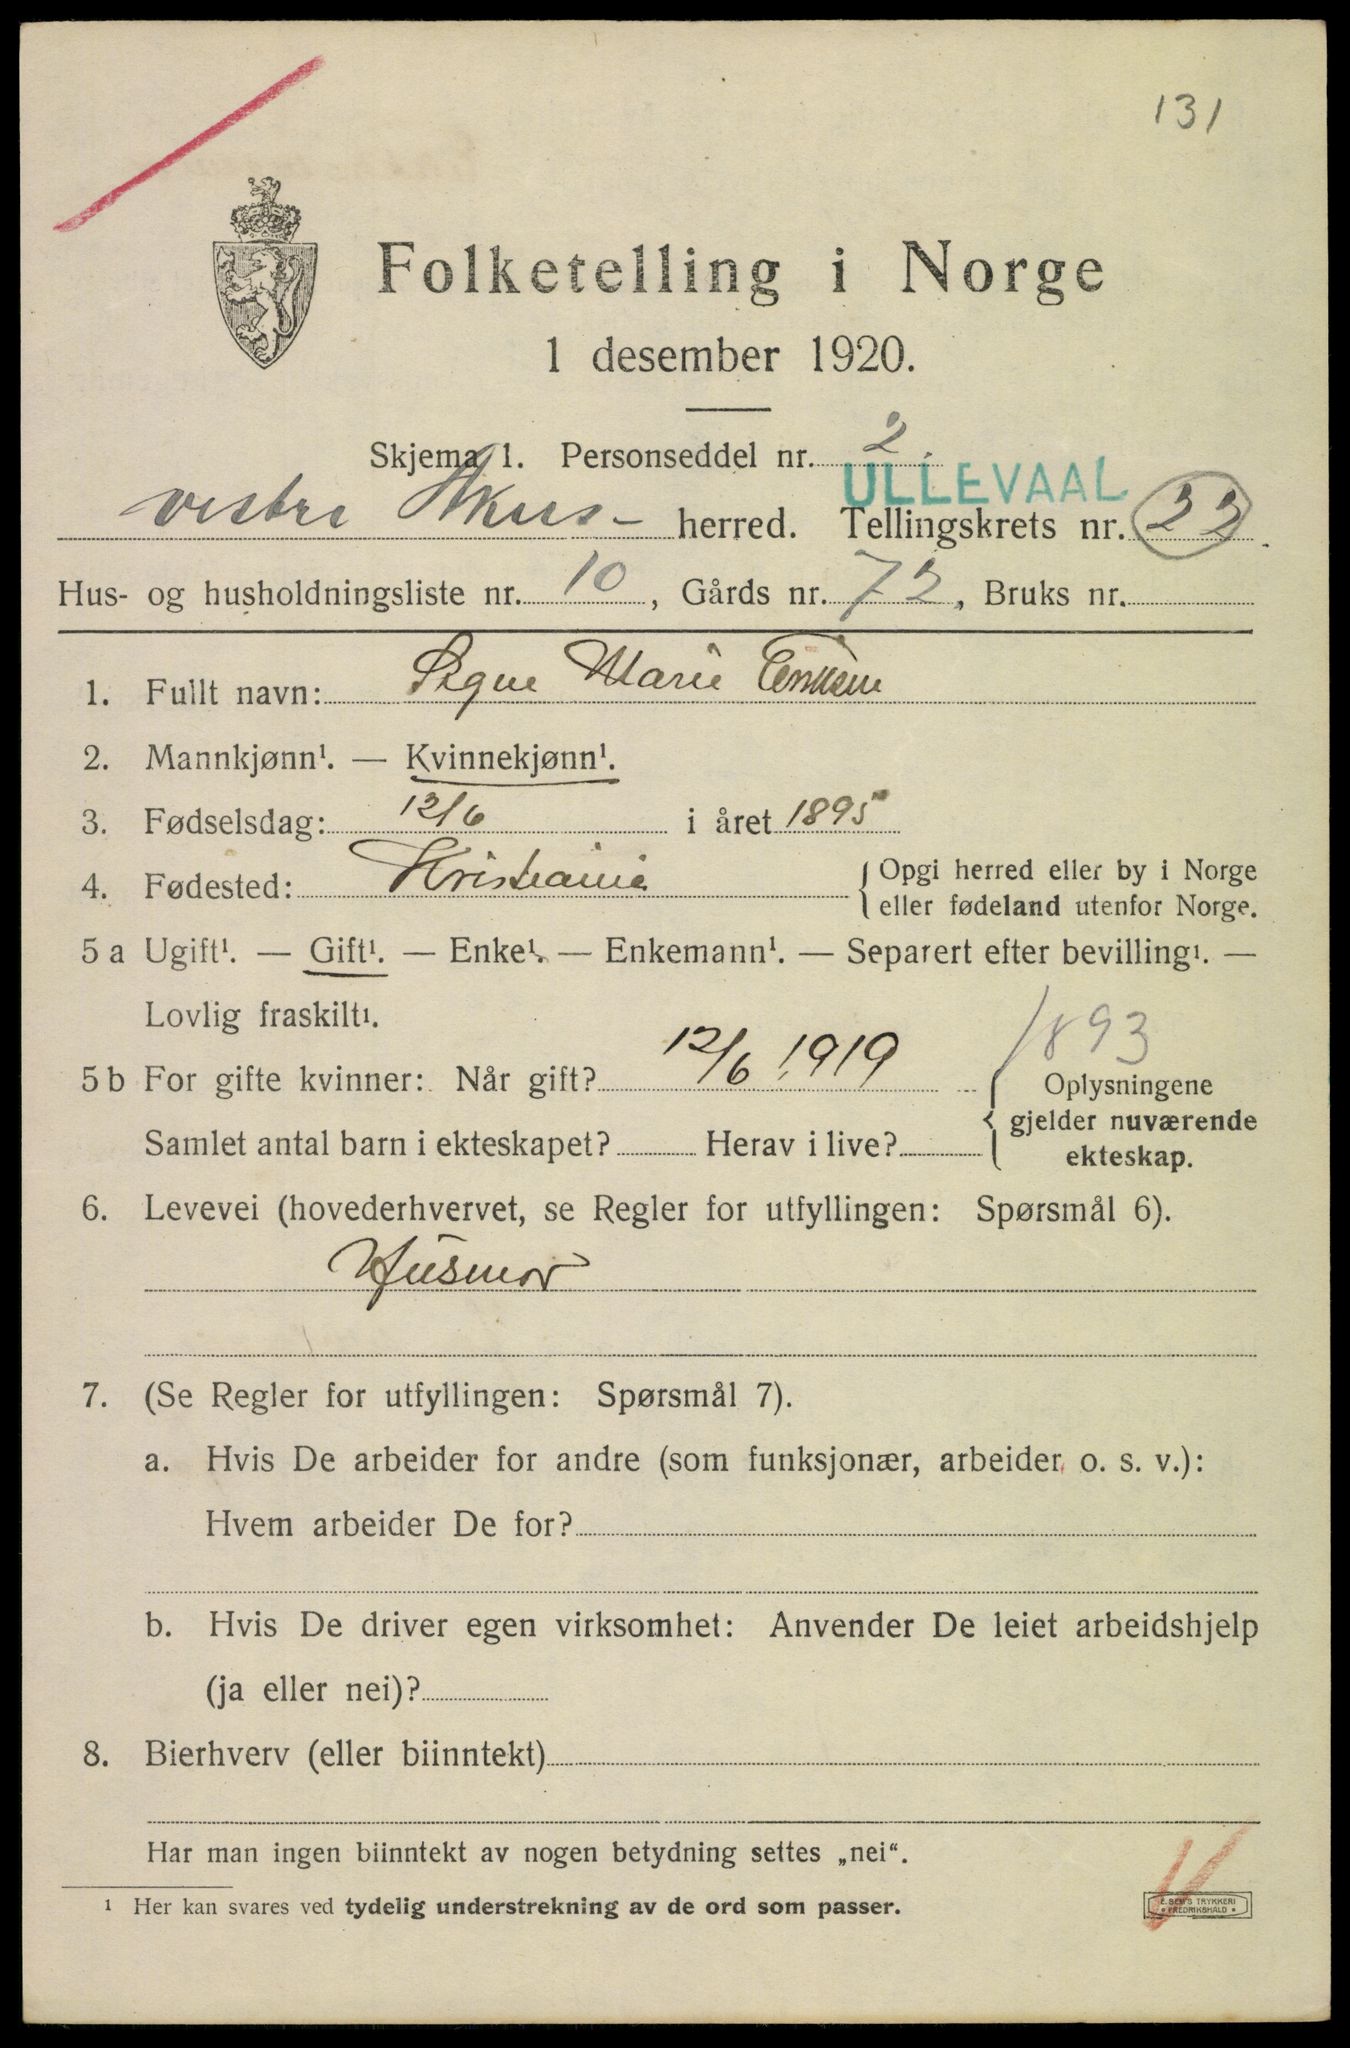 131
Folketelling i Norge
1 desember 1920.
Skjema 1. Personseddel nr. 2.
ULLEVAAL
vestre Akers- herred. Tellingskrets nr. 22.
Hus- og husholdningsliste nr. 10, Gårds nr. 72, Bruks nr.
1. Fullt navn: Signe Marie
2. Mannkjønn¹. — Kvinnekjønn¹.
3. Fødselsdag: 12/6 i året 1895
4. Fødested: Kristiania {Opgi herred eller by i Norge
eller fødeland utenfor Norge.
5 a Ugift¹. — Gift¹. — Enke¹. — Enkemann¹. — Separert efter bevilling¹. —
Lovlig fraskilt¹.
1893
5 b For gifte kvinner: Når gift? 12/6 1919 { Oplysningene
gjelder nuværende
Samlet antal barn i ekteskapet? Herav i live?
ekteskap.
6. Levevei (hovederhvervet, se Regler for utfyllingen: Spørsmål 6).
Husmor
7. (Se Regler for utfyllingen: Spørsmål 7).
a. Hvis De arbeider for andre (som funksjonær, arbeider, o. s. v.):
Hvem arbeider De for?
b. Hvis De driver egen virksomhet: Anvender De leiet arbeidshjelp
(ja eller nei)?
8. Bierhverv (eller biinntekt)
Har man ingen biinntekt av nogen betydning settes „nei“.
¹ Her kan svares ved tydelig understrekning av de ord som passer.
E. SEM'S TRYKKERI
• FREDRIKSHALD •